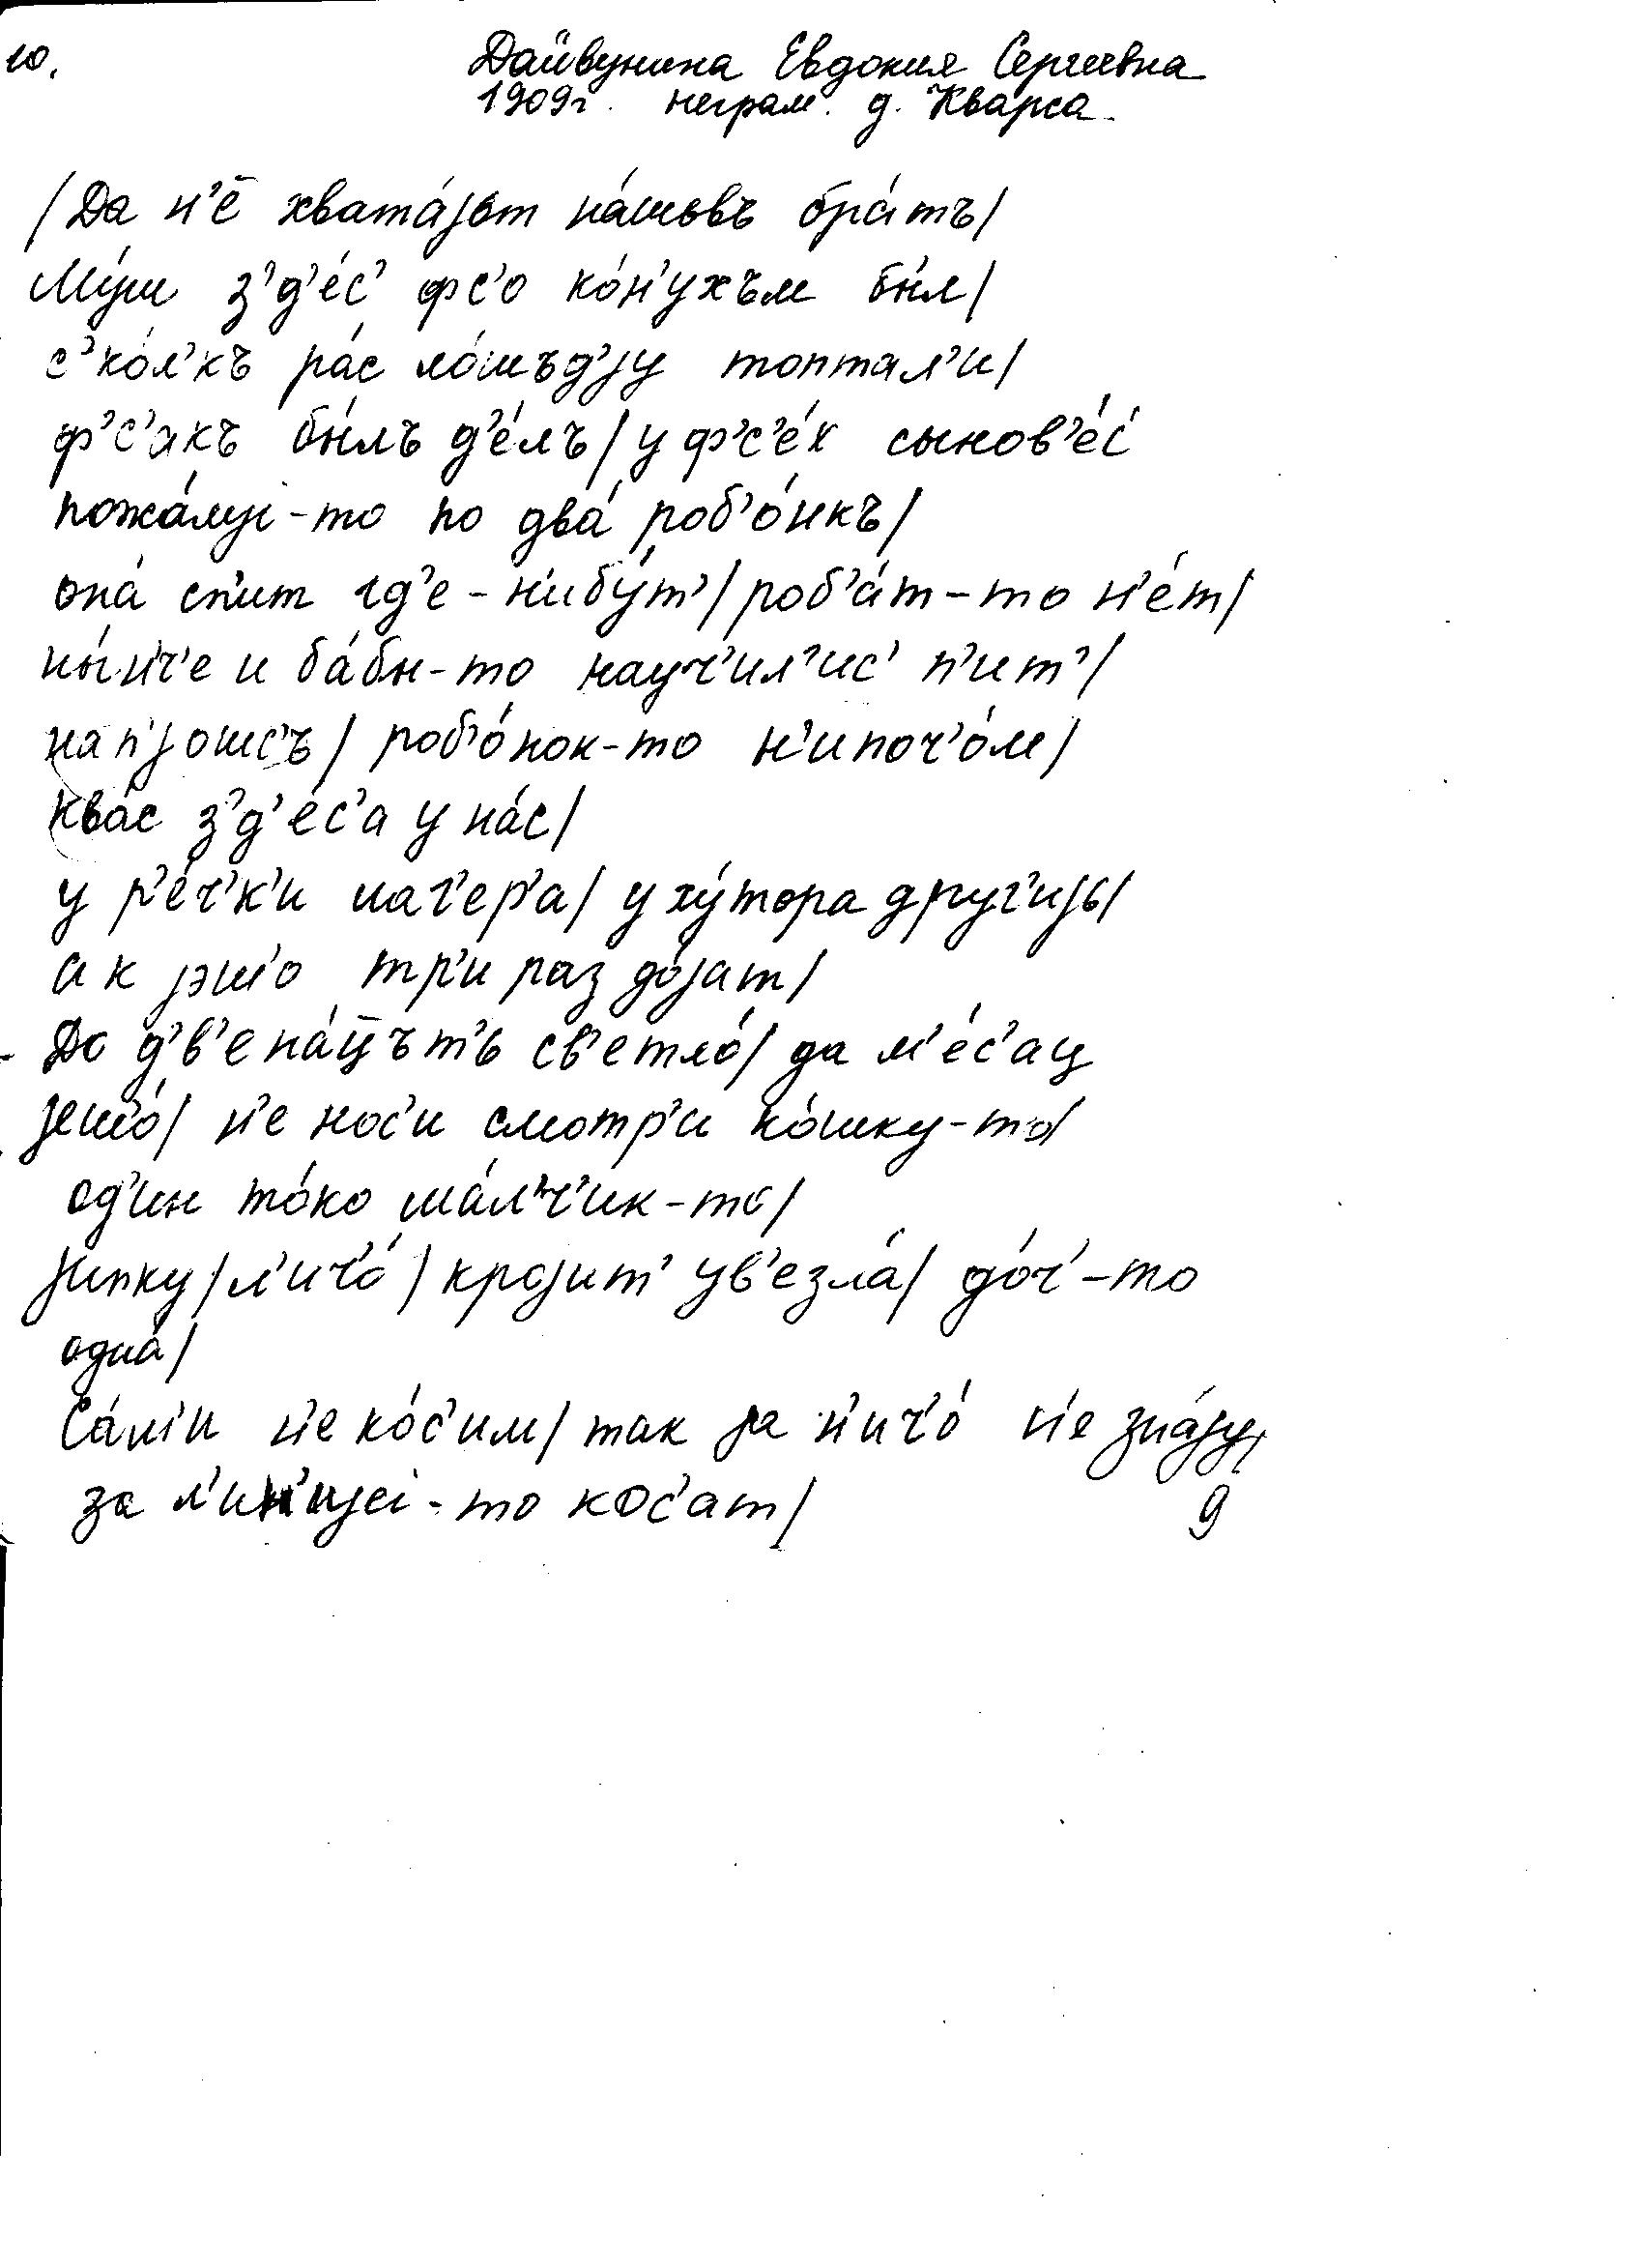 10.
Дайвунина Евдокия Сергеевна
1909г. неграм. д. Кварса.
/Да н'ē хвата́јьт на́шьвъ бра́тъ/
Му́ш з'д'е́с' фс'о ко́н'ухъм бы́л/
с'ко́л'къ ра́с ло́шъд'јy топтал'и/
ф'с'акъ бы́лъ д'е́лъ/ у ф'с'е́х сынов'е́с'
пожа́луі-то по два́ роб'о́нкъ/
она́ сп'ит гд'е-н'ибу́т'/ роб'а́т-то н'е́т/
ны́н'ч'е и ба́бы-то науч'ил'ис' п'ит'/
нап'јошс'ъ/ роб'о́нок-то н'ипоч'о́м/
Ква́с з'д'е́с'а у на́с/
у р'е́ч'к'и лаг'ер'а/ у ху́тора друг'ијь/
а к јэшо тр'и раз до́јат/
До д'в'ена́ц̄ът'ь св'етло́/ да м'е́с'ац
јешо́/ н'е нос'и смотр'и ко́шку-то/
од'ин то́ко ма́л'ч'ик-то/
јупку/ л'ич'о́/ кројит' ув'езла́/ до́ч'-то
одна́/
Са́м'и н'е ко́с'им/ так ја н'ич'о́ н'е зна́јy/
за л'ин'ијеі-то кос'ат/
9